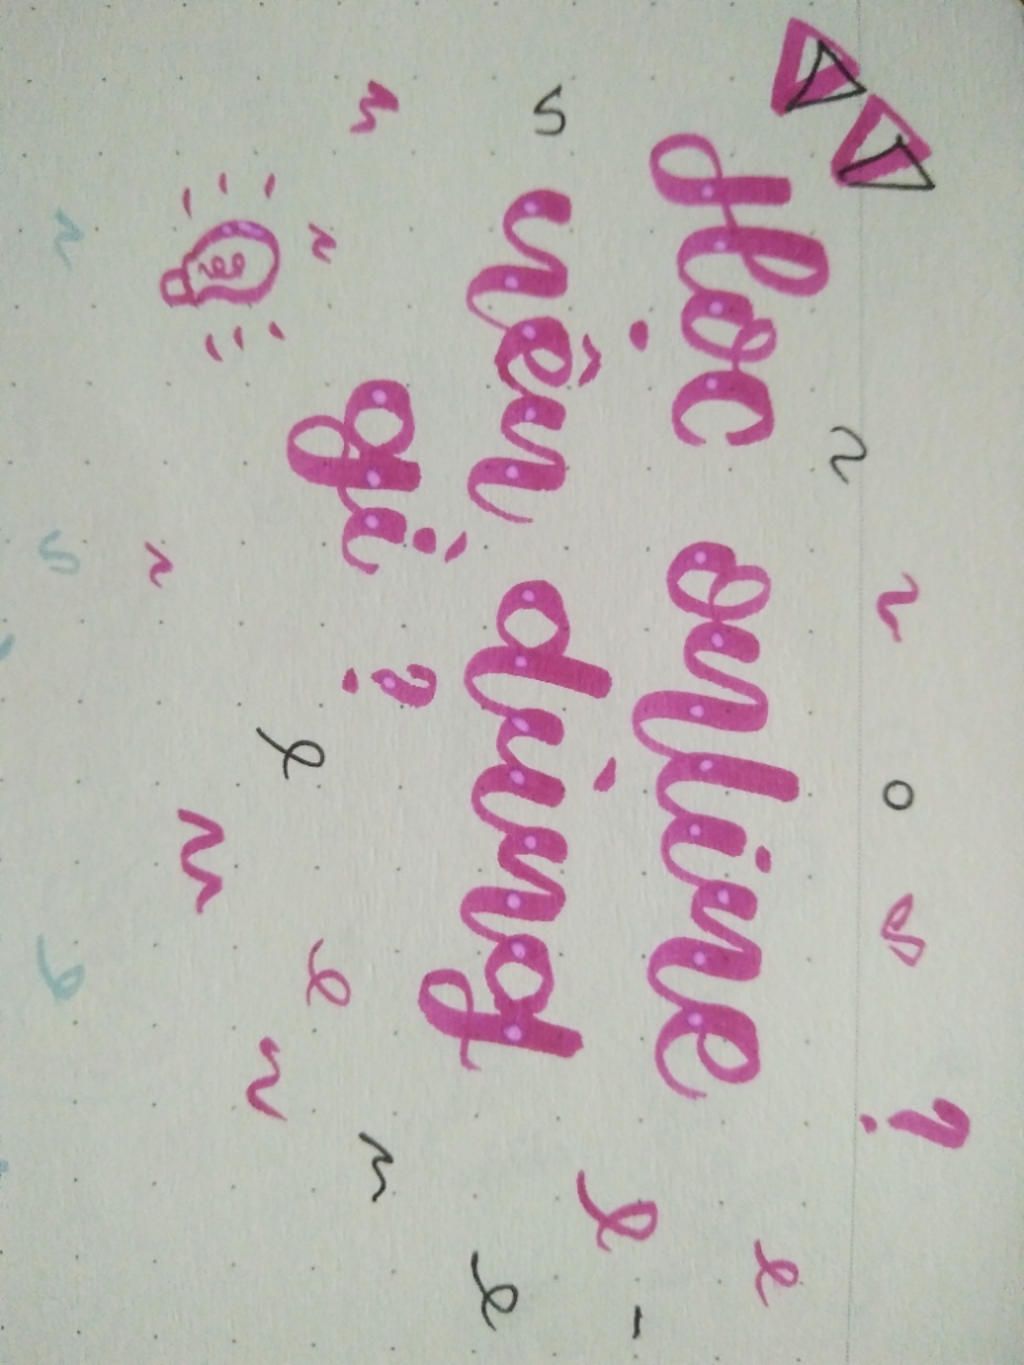 Học online
nên dùng
gì ?